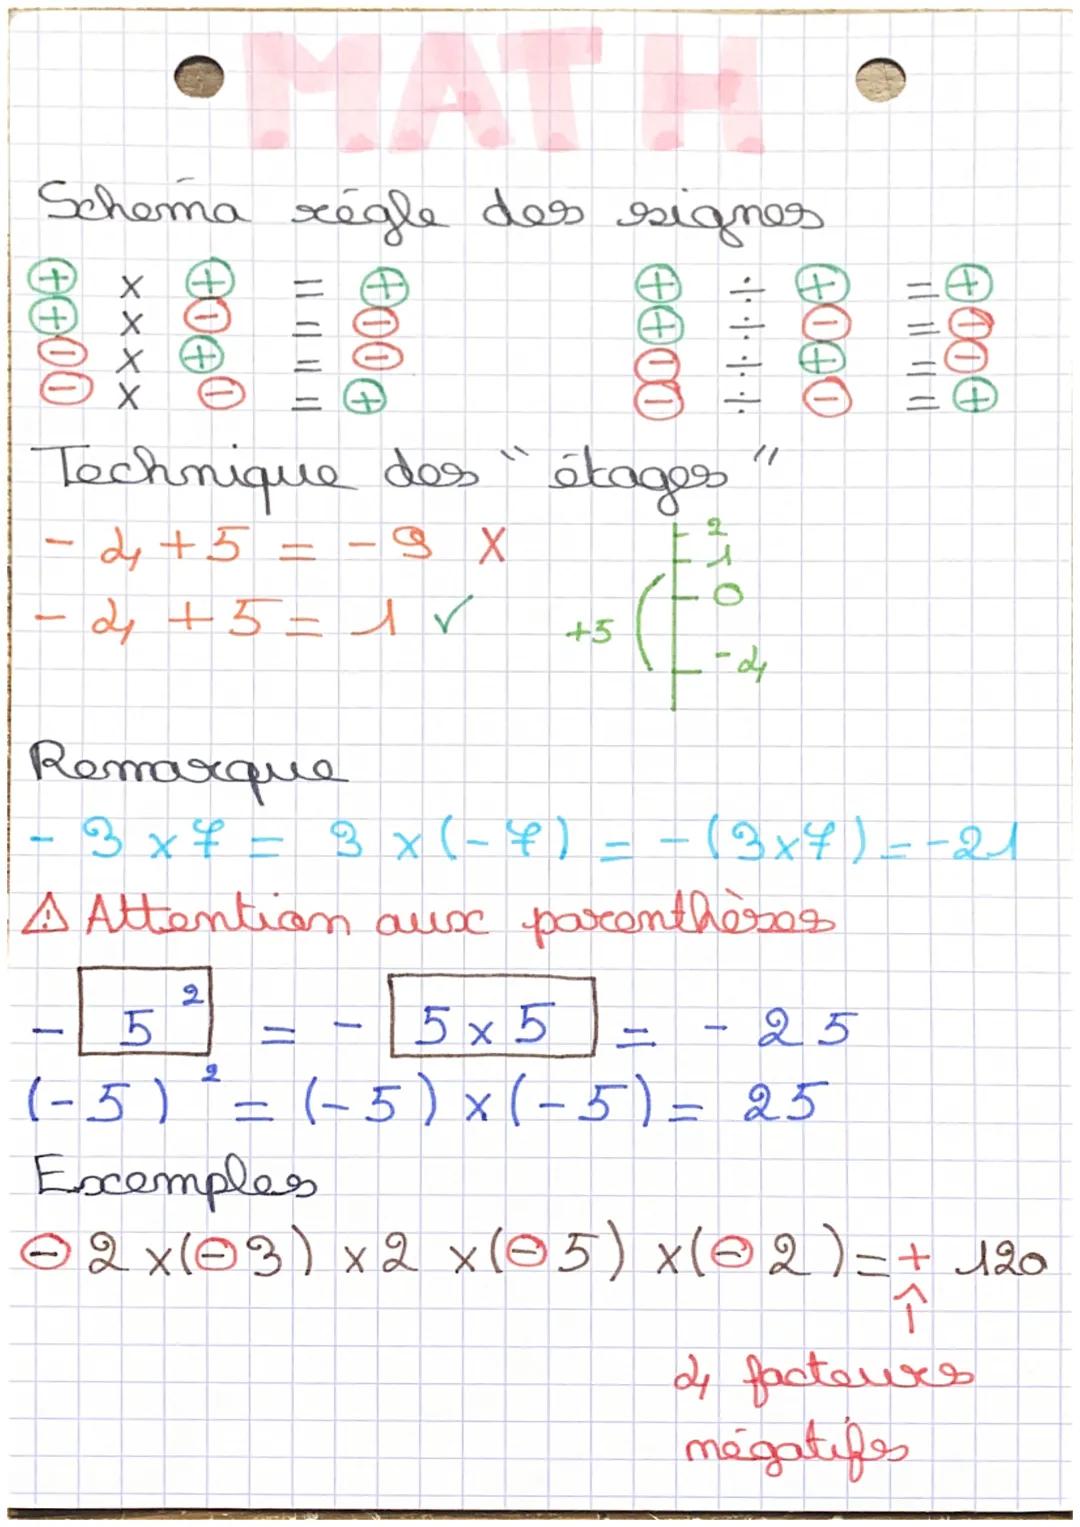 MATH
Schema règle des signes
⊕ × ⊕ = ⊕ ⊕ ÷ ⊕ = ⊕
⊕ × ⊖ = ⊖ ⊕ ÷ ⊖ = ⊖
⊖ × ⊕ = ⊖ ⊖ ÷ ⊕ = ⊖
⊖ × ⊖ = ⊕ ⊖ ÷ ⊖ = ⊕
Technique des " étages "
- 4 + 5 = - 9 X
- 4 + 5 = 1 ✓
2
1
0
+5
- 4
Remarque
- 3 × 7 = 3 × (- 7) = - (3×7) = -21
⚠ Attention aux parenthèses
- 5² = - 5 × 5 = - 25
(- 5)² = (- 5) × (- 5) = 25
Exemples
⊖ 2 × (⊖ 3) × 2 × (⊖ 5) × (⊖ 2) = + 120
↑
4 facteurs
négatifs